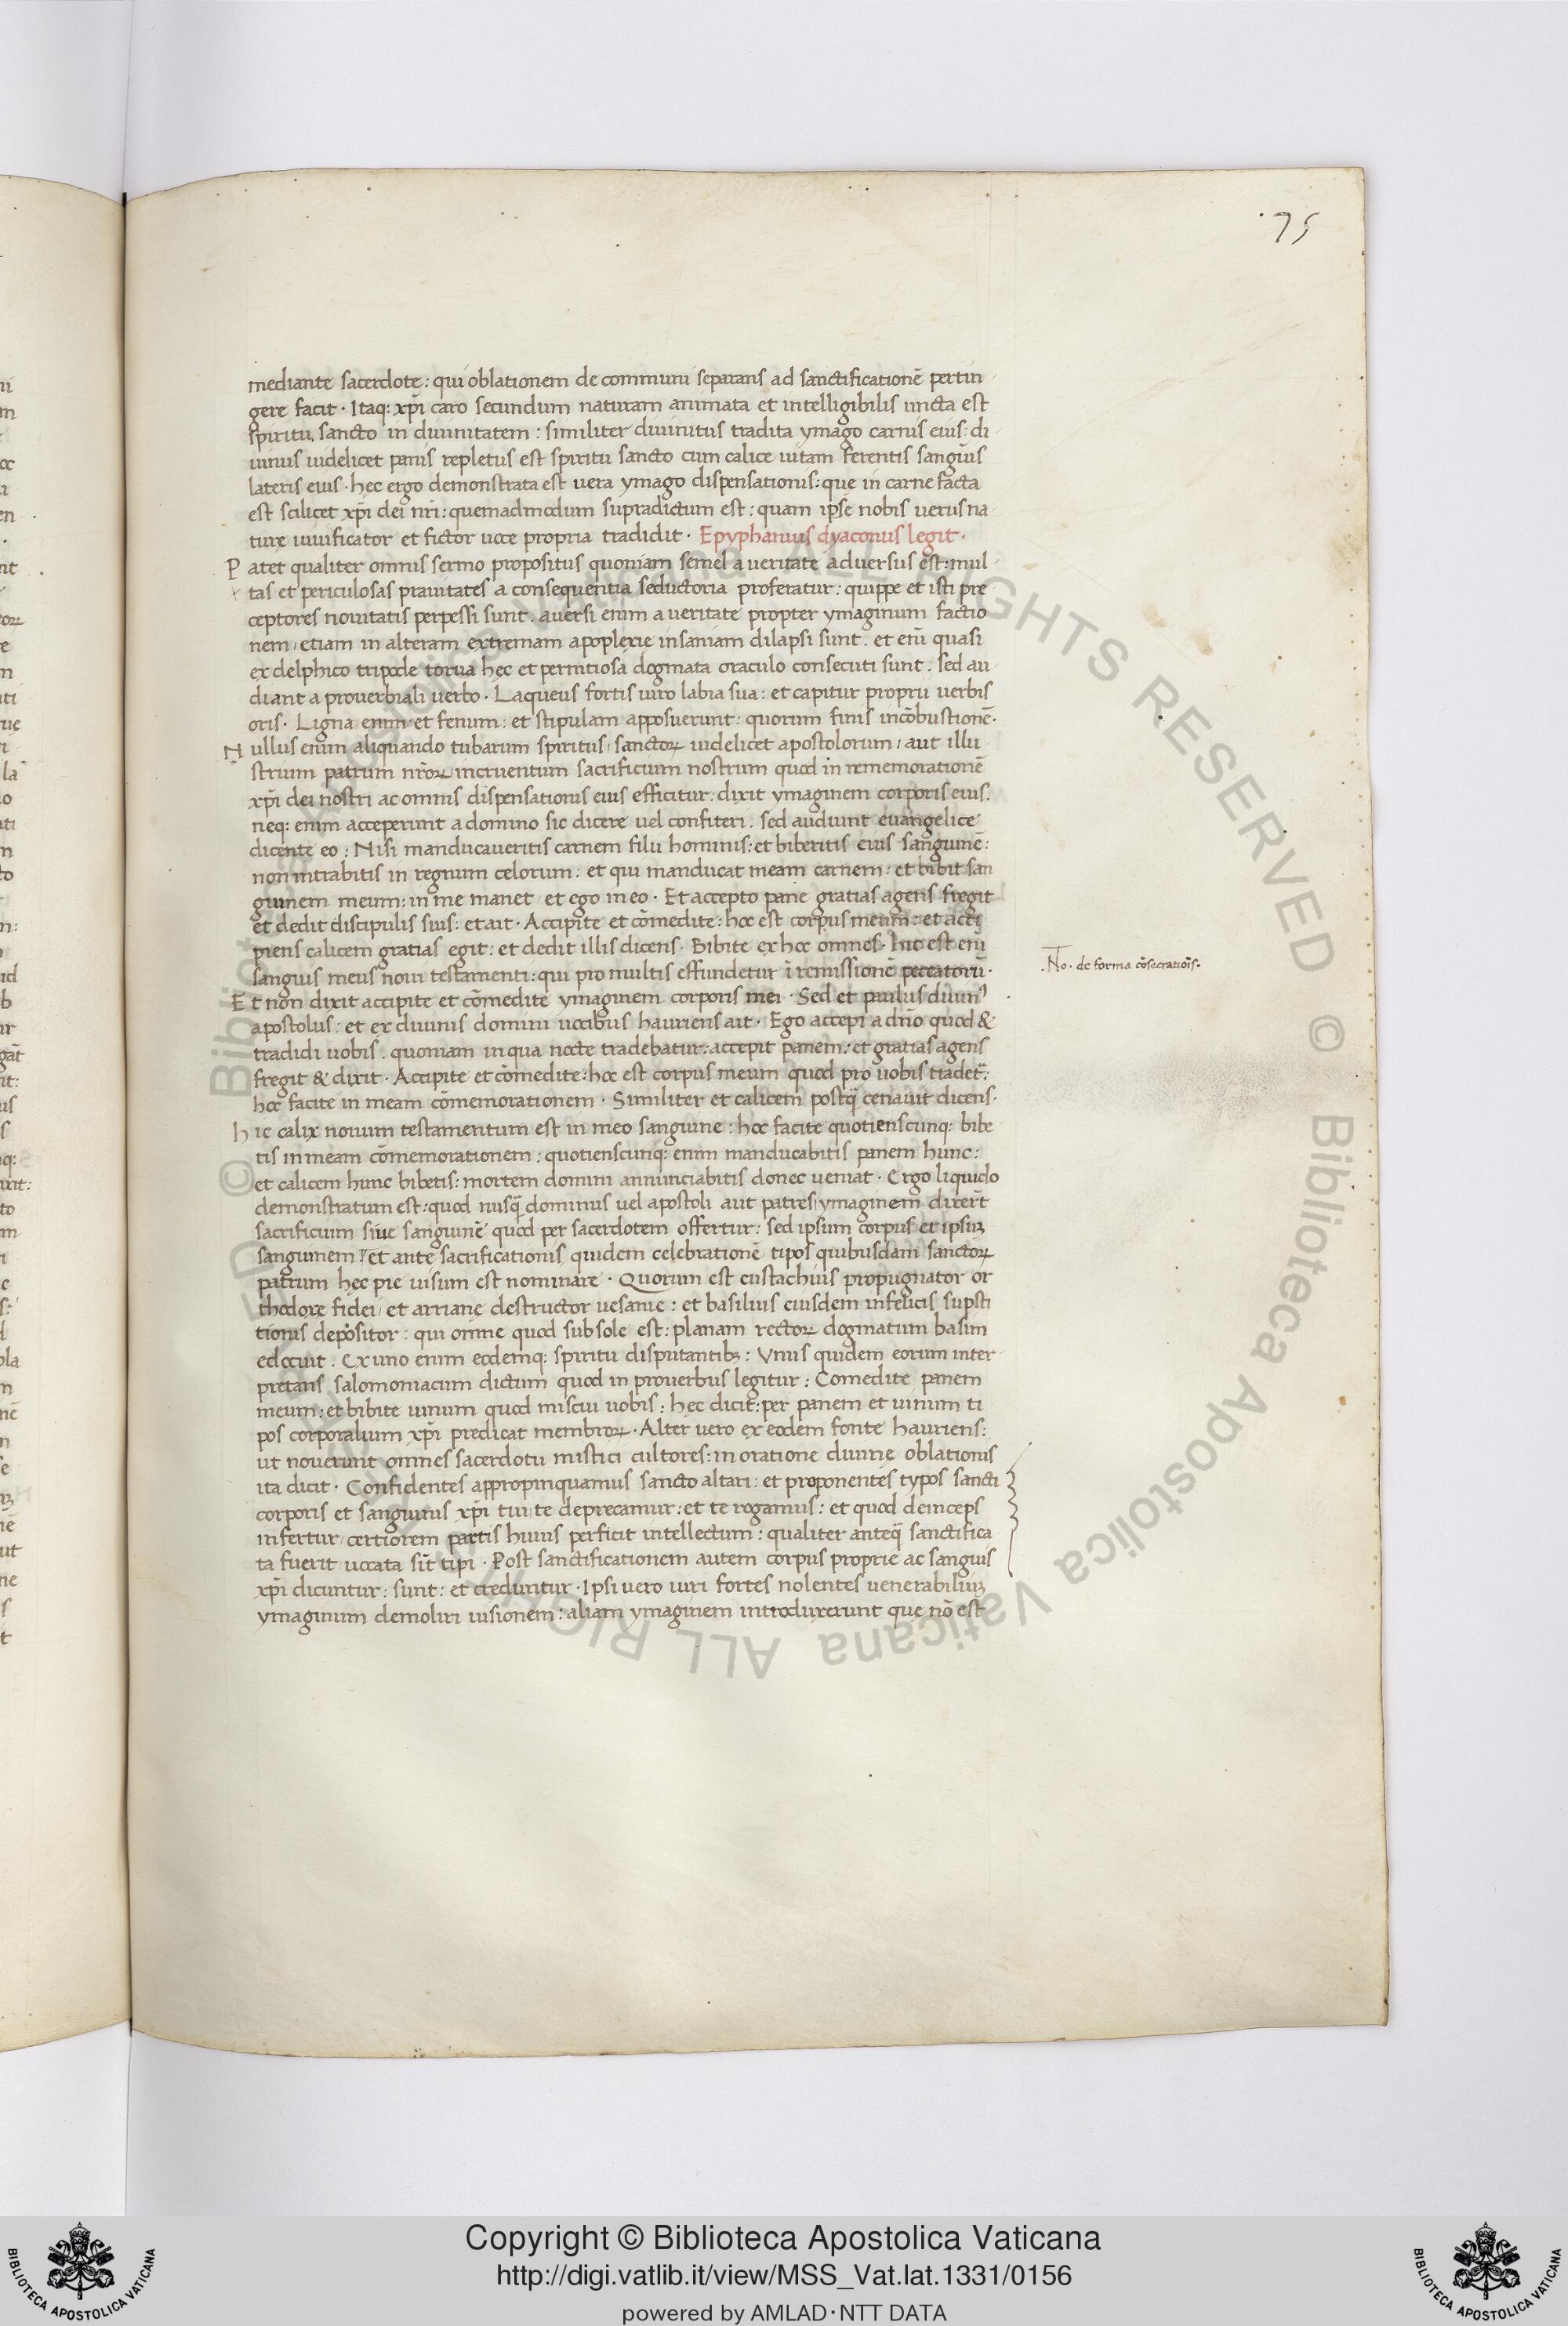 75
mediante sacerdote: qui oblationem de communi separans ad sanctificationē pertin
gere facit · Itaq: xp̄i caro secundum naturam animata et intelligibilis uncta est
spiritu sancto in diuinitatem: similiter diuinitus tradita ymago carnis eius: di
uinus uidelicet panis repletus est spiritu sancto cum calice uitam ferentis sanguis
lateris eius · hec ergo demonstrata est uera ymago dispensationis: que in carne facta
est scilicet xp̄i dei nr̄i: quemadmodum supradictum est: quam ipse nobis uerus na
ture uiuificator et fictor uoce propria tradidit · Epyphanius dyaconus legit ·
Patet qualiter omnis sermo propositus quoniam semel a ueritate aduersus est: mul
tas et periculosas prauitates a consequentia seductoria proferatur: quippe et isti pre
ceptores nouitatis perpessi sunt. auersi enim a ueritate propter ymaginum factio
nem, etiam in alteram extremam apoplexie insaniam dilapsi sunt. et eni᷑ quasi
ex delphico tripode torua hec et pernitiosa dogmata oraculo consecuti sunt. sed au
diant a prouerbiali uerbo · Laqueus fortis uiro labia sua: et capitur proprii uerbis
oris · Ligna enim et fenum: et stipulam apposuerunt: quorum finis incōbustionē·
Nullus enim aliquando tubarum spiritus, sanctoꝝ uidelicet apostolorum, aut illu
strium patrum nr̄oꝝ incruentum sacrificium nostrum quod in rememorationē
xp̄i dei nostri ac omnis dispensationis eius efficitur. dixit ymaginem corporis eius.
neq: enim acceperunt a domino sic dicere uel confiteri. sed audiunt euangelice
dicente eo: Nisi manducaueritis carnem filii hominis: et biberitis eius sanguinē:
non intrabitis in regnum celorum: et qui manducat meam carnem: et bibit san
guinem meum: in me manet et ego in eo · Et accepto pane gratias agens fregit
et dedit discipulis suis: et ait · Accipite et cōmedite: hoc est corpus meum: et acci
piens calicem gratias egit: et dedit illis dicens · Bibite ex hoc omnes · hic est eni᷑
sanguis meus noui testamenti: qui pro multis effundetur ī remissionē peccatorū·
Et non dixit accipite et cōmedite ymaginem corporis mei · Sed et paulus diuinꝰ
apostolus: et ex diuinis domini uocibus hauriens ait · Ego accepi a dn̄o quod &
tradidi uobis. quoniam in qua nocte tradebatur: accepit panem: et gratias agens
fregit & dixit · Accipite et cōmedite: hoc est corpus meum quod pro uobis tradet᷑:
hoc facite in meam cōmemorationem · Similiter et calicem postq̄ cenauit dicens·
hic calix nouum testamentum est in meo sanguine: hoc facite quotienscunq: bibe
tis in meam cōmemorationem: quotienscunq: enim manducabitis panem hunc:
et calicem hunc bibetis: mortem domini annunciabitis donec ueniat · Ergo liquido
demonstratum est: quod nusq̄ dominus uel apostoli aut patres, ymaginem dixer̄t
sacrificium siue sanguinē quod per sacerdotem offertur: sed ipsum corpus et ipsuꝫ
sanguinem: et ante sacrificationis quidem celebrationē tipos quibusdam sanctoꝝ
patrum hec pie uisum est nominare · Quorum est eustachius propugnator or
thodoxe fidei, et arriane destructor uesanie: et basilius eiusdem infelicis supsti
tionis depositor: qui omne quod sub sole est: planam rectoꝝ dogmatum basim
edocuit. Ex uno enim eodemq: spiritu disputantibꝫ: Vnus quidem eorum inter
pretans salomoniacum dictum quod in prouerbiis legitur: Comedite panem
meum: et bibite uinum quod miscui uobis: hec dicit: per panem et uinum ti
pos corporalium xp̄i predicat membroꝝ · Alter uero ex eodem fonte hauriens:
ut nouerunt omnes sacerdotii mistici cultores: in oratione diuine oblationis
ita dicit · Confidentes appropinquamus sancto altari: et proponentes typos sancti
corporis et sanguinis xp̄i tui, te deprecamur: et te rogamus: et quod deinceps
infertur, certiorem partis huius perficit intellectum: qualiter anteq̄ sanctifica
ta fuerit uocata sīt tipi · Post sanctificationem autem corpus proprie ac sanguis
xp̄i dicuntur: sunt: et creduntur · Ipsi uero uiri fortes nolentes uenerabiliuꝫ
ymaginum demoliri uisionem: aliam ymaginem introduxerunt que nō est
.No· de forma cōsecratiōis·
Copyright © Biblioteca Apostolica Vaticana
http://digi.vatlib.it/view/MSS_Vat.lat.1331/0156
powered by AMLAD·NTT DATA
BIBLIOTECA APOSTOLICA VATICANA
BIBLIOTECA APOSTOLICA VATICANA